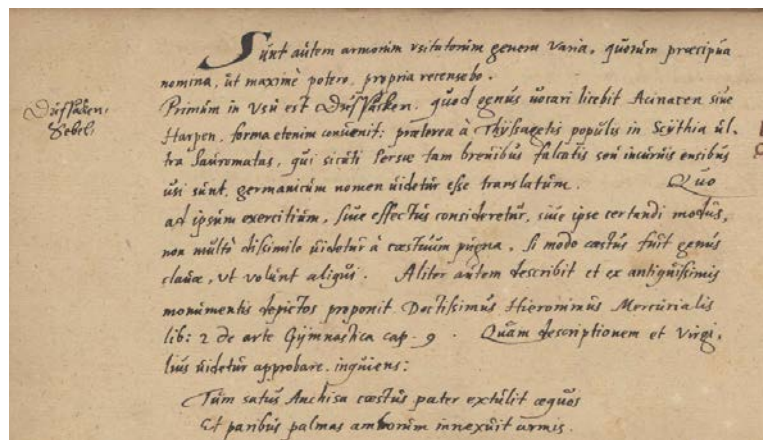 Sunt autem armorum usitatorum genera varia, quorum præcipua
nomina, ut maximè potero, propria recensebo.
Dussaken.
Sebel.
Primum in usu est Dussacken. quod genus vocari licebit Acinacen sive
Harpen, forma etenim convenit: præterea à Thyssagetis populis in Scythia ul-
tra Sauromatas, qui sicuti Persæ tam brevibus falcatis seu incurvis ensibus
usi sunt, germanicum nomen videtur esse translatum. Quo
ad ipsum exercitium, sive effectus consideretur, sive ipse certandi modus,
non multò dissimile videtur à cæstuum pugna, si modo cæstus fuit genus
clavæ, ut volunt aliqui. Aliter autem describit et ex antiquissimis
monumentis depictos proponit Doctissimus Hieronimus Mercurialis
lib: 2 de arte Gymnastica cap. 9. Quam descriptionem et Virgi-
lius videtur approbare, inquiens:
Tum satus Anchisa cæstus pater extulit æquos
Et paribus palmas amborum innexuit armis.